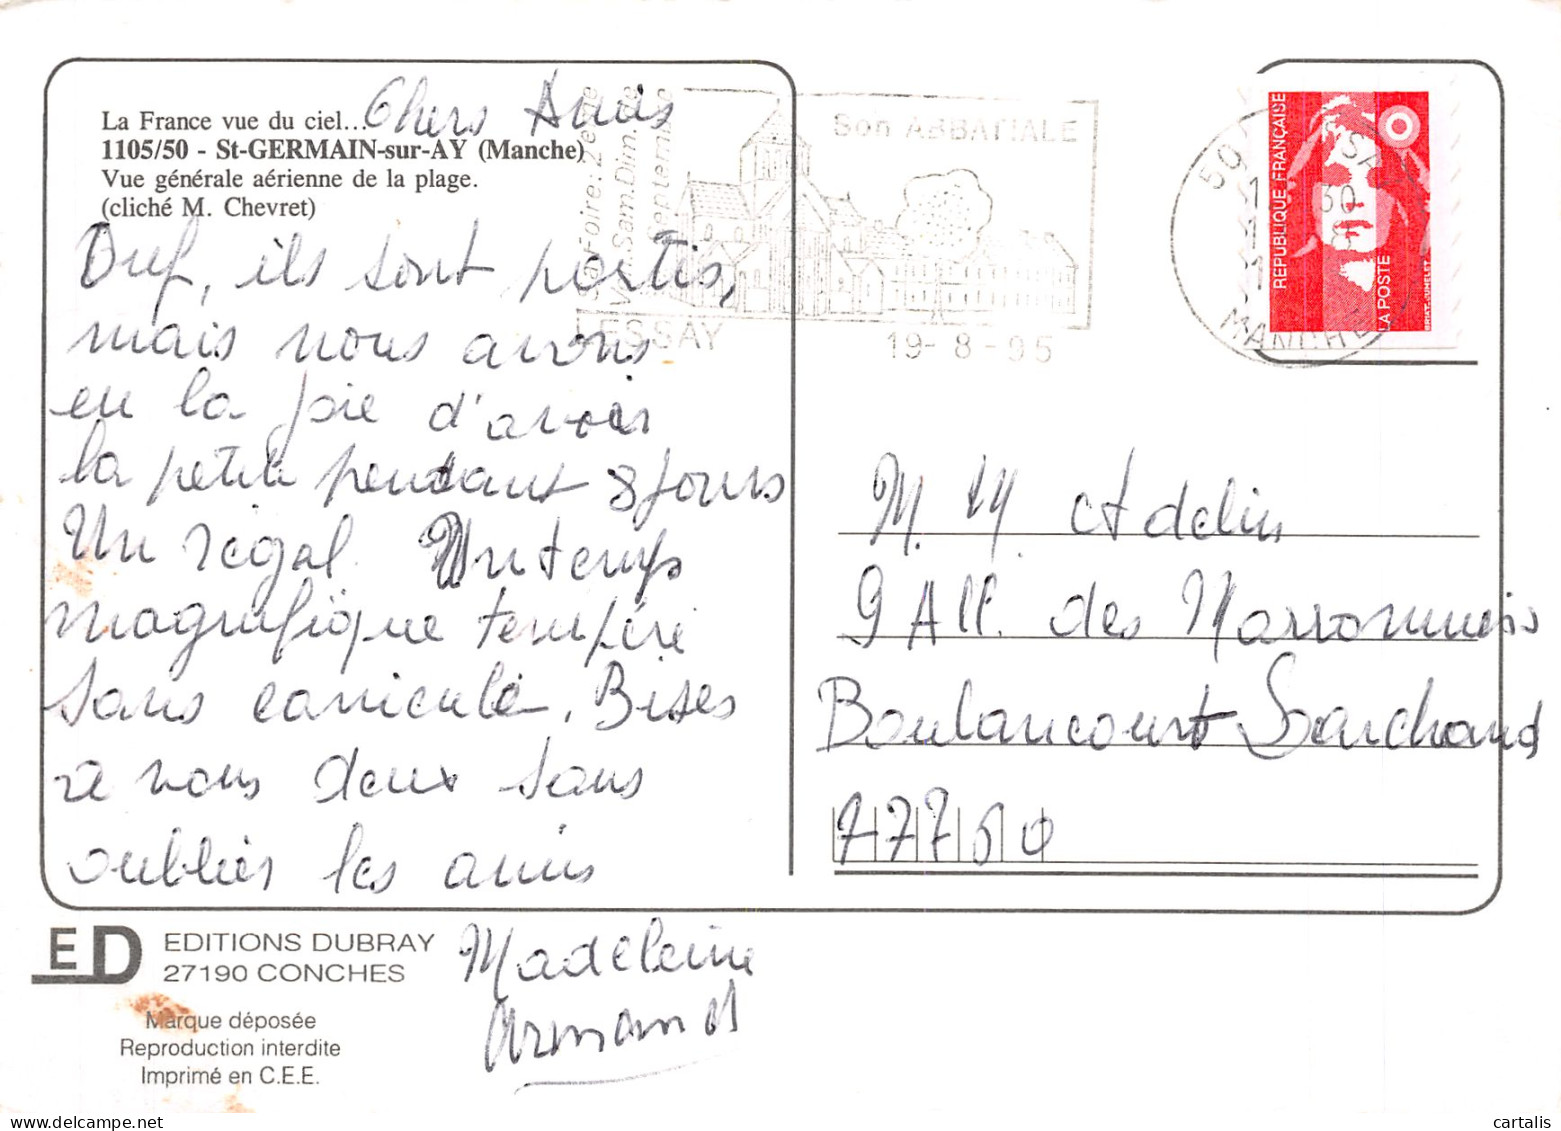 La France vue du ciel...
1105/50 - St-GERMAIN-sur-AY (Manche)
Vue générale aérienne de la plage.
(cliché M. Chevret)
Chers Amis
Ouf, ils sont partis,
mais nous avons
eu la joie d'avoir
la petite pendant 8 jours
Un régal. Un temps
magnifique tempéré
sans canicule. Bises
a vous deux sans
oublier les amis
Madeleine
Armand
Son ABBATIALE
Sa Foire: 2e
Ven. Sam. Dim. de
Septembre
LESSAY
19-8-95
50
MANCHE
REPUBLIQUE FRANÇAISE
LA POSTE
M. M. Adelin
9 All. des Marronniers
Boulancourt
77760
ED
EDITIONS DUBRAY
27190 CONCHES
Marque déposée
Reproduction interdite
Imprimé en C.E.E.
cartalis
https://www.delcampe.net